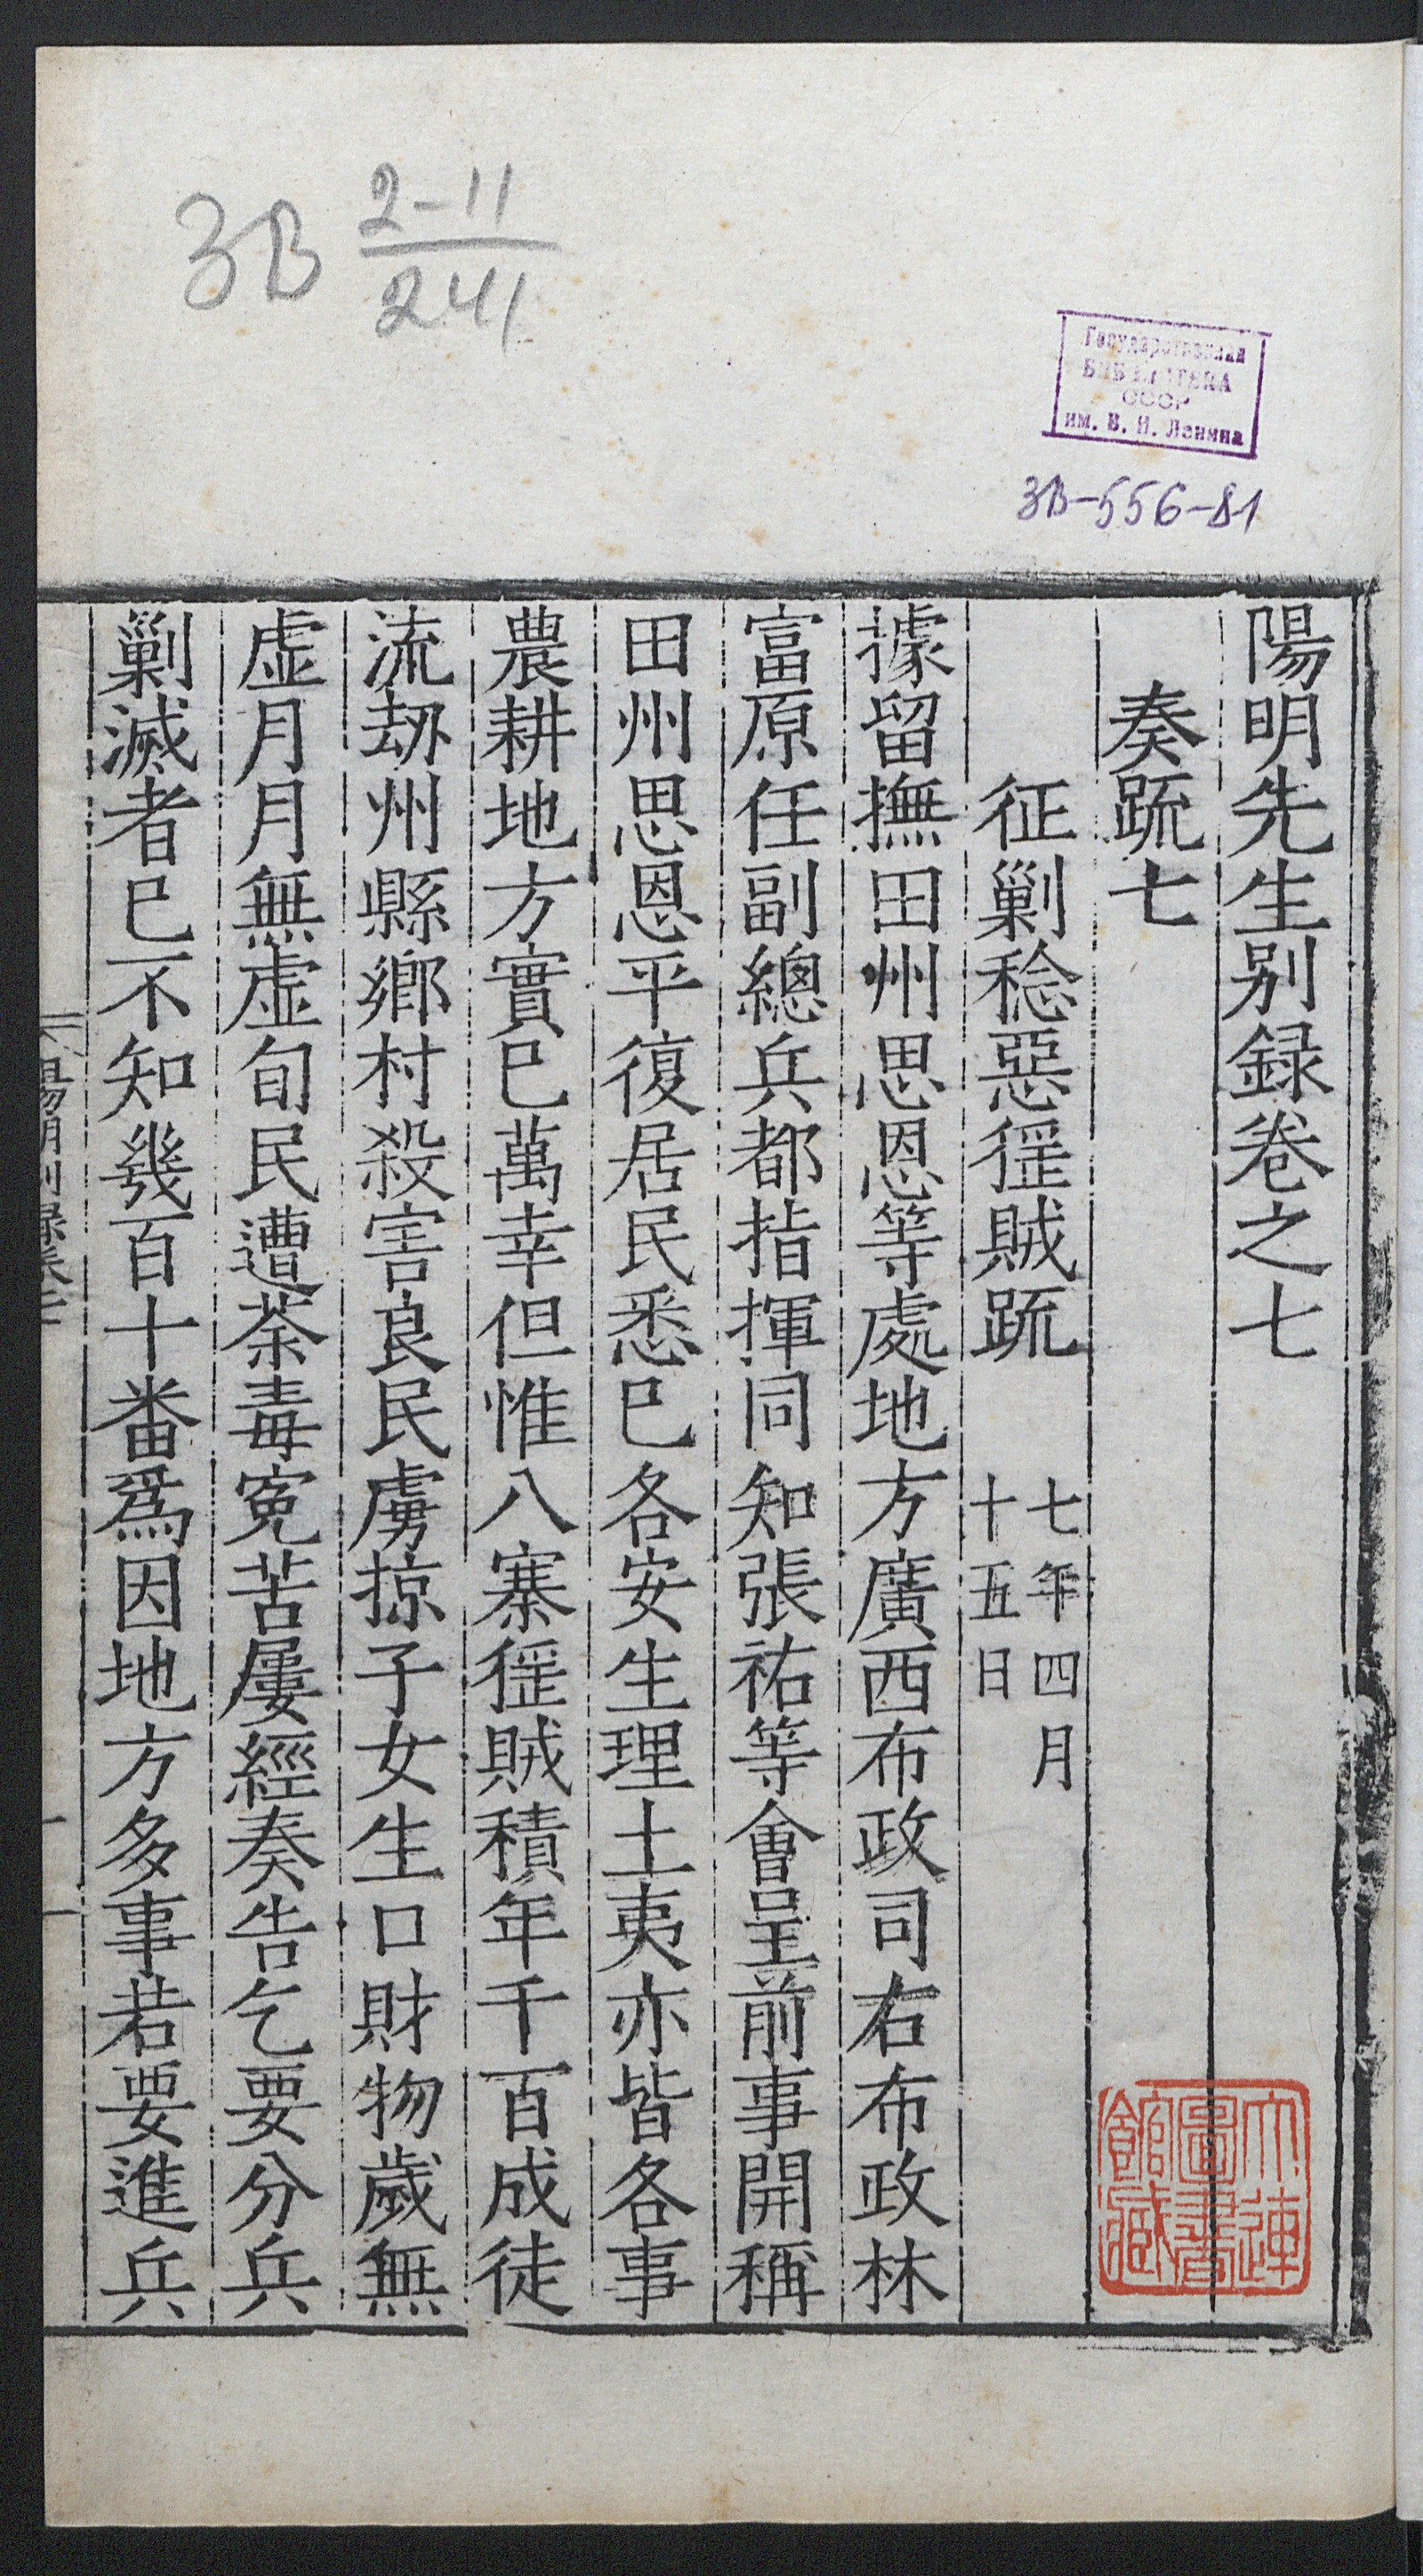 3В 2-11
241
Государственная
БИБЛИОТЕКА
СССР
им. В. И. Ленина
3В-556-81
陽明先生别録卷之七
奏疏七
征剿稔惡猺賊疏 七年四月
十五日
據留撫田州思恩等處地方廣西布政司右布政林
富原任副總兵都指揮同知張祐等會呈前事開稱
田州思恩平復居民悉已各安生理土夷亦皆各事
農耕地方實已萬幸但惟八寨猺賊積年千百成徒
流刼州縣鄉村殺害良民虜掠子女生口財物歲無
虚月月無虚旬民遭荼毒冤苦屢經奏告乞要分兵
剿滅者已不知幾百十番爲因地方多事若要進兵
陽明别録卷七
大連
圖書
館藏